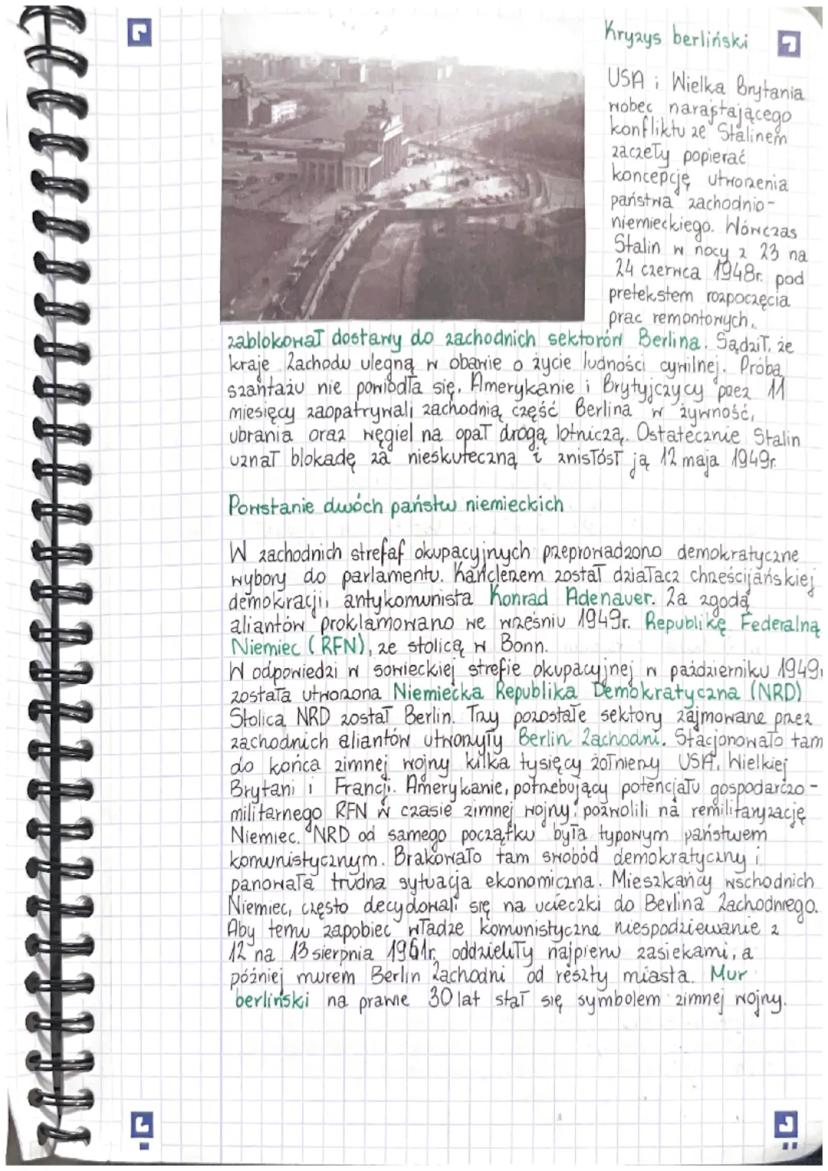 Kryzys berliński
USA i Wielka Brytania
wobec narastającego
konfliktu ze Stalinem
zaczeły popierać
koncepcję utworzenia
państwa zachodnio-
niemieckiego. Wówczas
Stalin w nocy z 23 na
24 czerwca 1948r. pod
pretekstem rozpoczęcia
prac remontowych,
zablokował dostawy do zachodnich sektorów Berlina. Sądził, że
kraje Zachodu ulegną w obawie o życie ludności cywilnej. Próba
szantażu nie powiodła się. Amerykanie i Brytyjczycy pzez 11
miesięcy zaopatrywali zachodnią część Berlina w żywność,
ubrania oraz węgiel na opał drogą lotniczą. Ostatecznie Stalin
uznał blokadę za nieskuteczną i zniósł ją 12 maja 1949r.
Powstanie dwóch państw niemieckich
W zachodnich strefaf okupacyjnych przeprowadzono demokratyczne
wybory do parlamentu. Kanclerzem został działacz chrześcijańskiej
demokracji, antykomunista Konrad Adenauer. Za zgodą
aliantów proklamowano we wrześniu 1949r. Republikę Federalną
Niemiec (RFN), ze stolicą w Bonn.
W odpowiedzi w sowieckiej strefie okupacyjnej w październiku 1949r
została utworzona Niemiecka Republika Demokratyczna (NRD)
Stolicą NRD został Berlin. Trzy pozostałe sektory zajmowane przez
zachodnich aliantów utworzyły Berlin Zachodni. Stacjonowało tam
do końca zimnej wojny kilka tysięcy żołnierzy USA, Wielkiej
Brytani i Francji. Amerykanie, potrzebujący potencjału gospodarczo-
militarnego RFN w czasie zimnej wojny, pozwolili na remilitaryzację
Niemiec. NRD od samego początku była typowym państwem
komunistycznym. Brakowało tam swobód demokratyczny i
panowała trudna sytuacja ekonomiczna. Mieszkańcy wschodnich
Niemiec, często decydowali się na ucieczki do Berlina Zachodniego.
Aby temu zapobiec władze komunistyczne niespodziewanie z
12 na 13 sierpnia 1961r. oddzieliły najpierw zasiekami, a
później murem Berlin Zachodni od reszty miasta. Mur
berliński na prawie 30 lat stał się symbolem zimnej wojny.